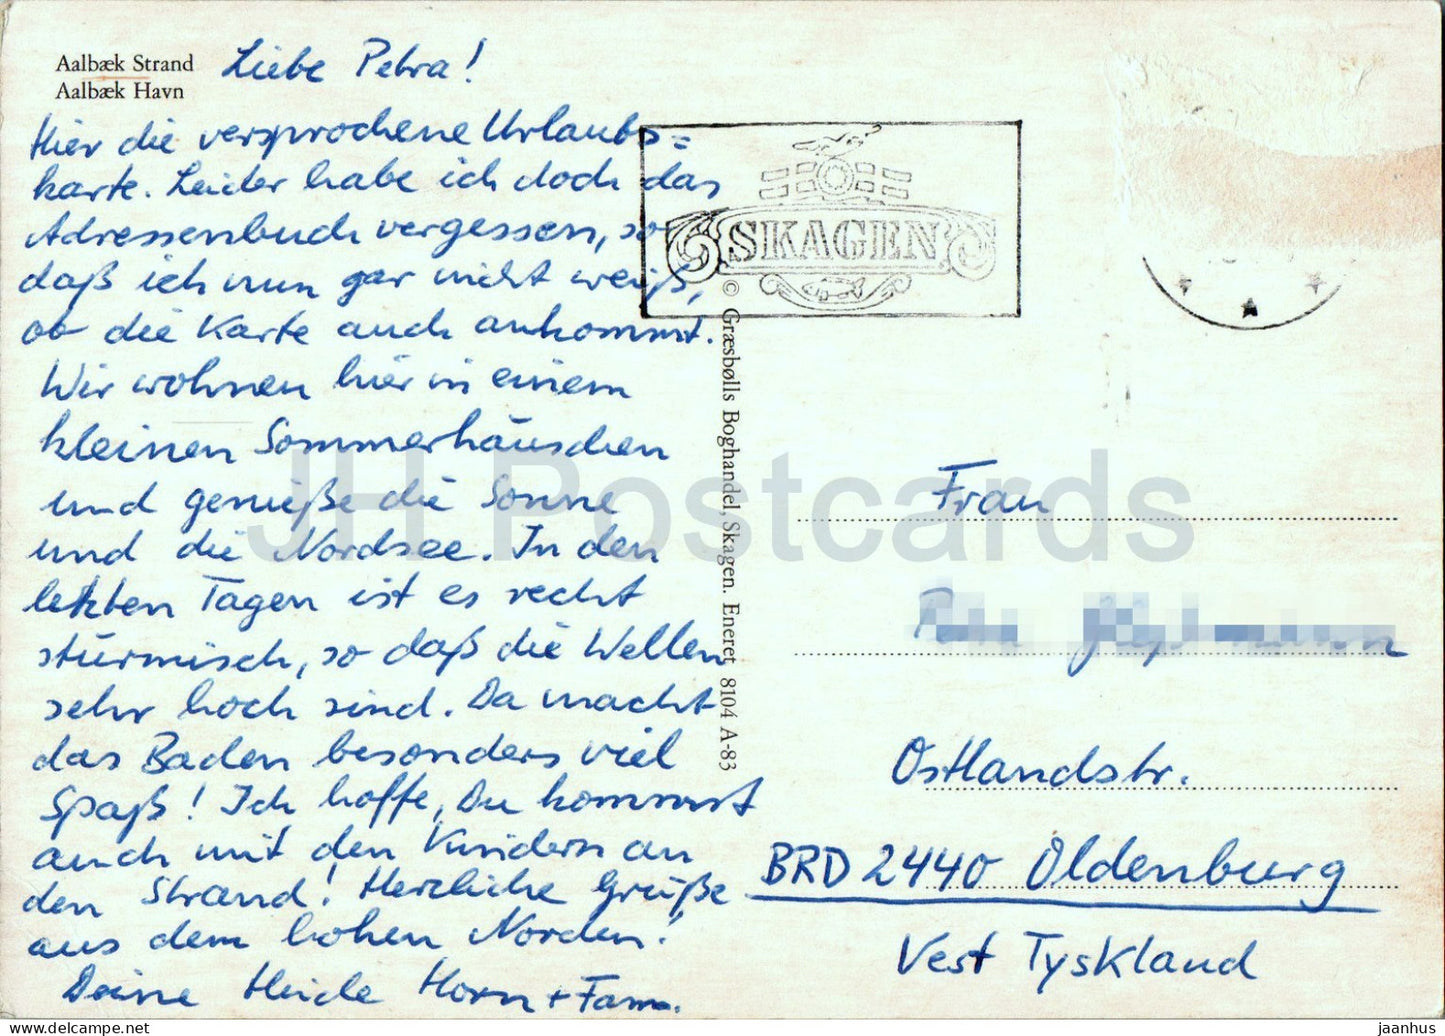 Aalbæk Strand
Aalbæk Havn
Liebe Petra!
Hier die versprochene Urlaubs=
karte. Leider habe ich doch das
Adressenbuch vergessen, so
daß ich nun gar nicht weiß,
ob die Karte auch ankommt.
Wir wohnen hier in einem
kleinen Sommerhäuschen
und genieße die Sonne
und die Nordsee. In den
letzten Tagen ist es recht
stürmisch, so daß die Wellen
sehr hoch sind. Da macht
das Baden besonders viel
Spaß! Ich hoffe, Du kommst
auch mit den Kindern an
den Strand! Herzliche Grüße
aus dem hohen Norden!
Deine Heide Horn + Fam.
SKAGEN
© Græsbølls Boghandel, Skagen. Eneret 8104 A-83
Frau
Ostlandstr.
BRD 2440 Oldenburg
Vest Tyskland
JH Postcards
delcampe.net
jaanhus